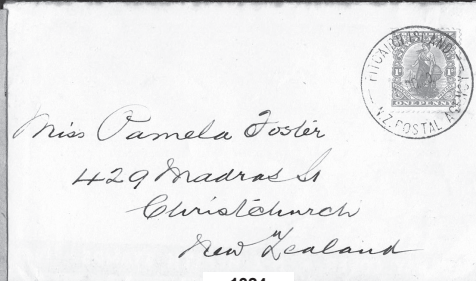 PITCAIRN ISLAND
N.Z. POSTAL AGENCY
ONE PENNY
Miss Pamela Foster
429 Madras St
Christchurch
New Zealand